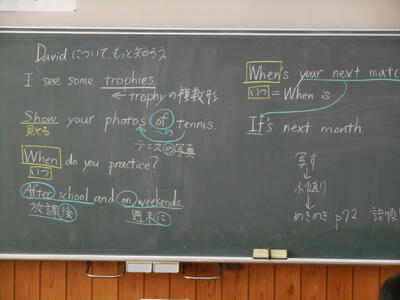 Davidについて、もっと知ろう
I see some trophies.
← trophyの複数形
Show your photos of tennis.
見せる
～の
テニスの写真
When do you practice?
いつ
After school and on weekends.
放課後
週末に
When's your next matc
いつ = When is
It's next month.
写す
↓
ふり返り
↓
めきめき p72